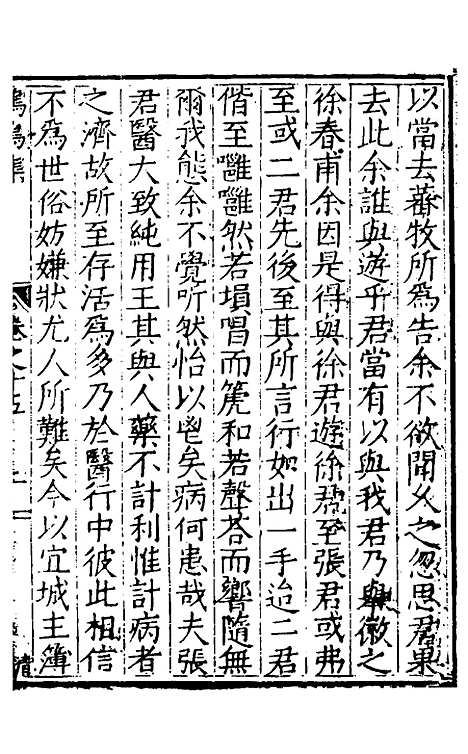 以當去蕃牧所爲告余不欲聞久之忽思君果
去此余誰與遊乎君當有以與我君乃與徽之
徐春甫余因是得與徐君遊徐君至張君或弗
至或二君先後至其所言行如出一手迨二君
偕至雝雝然若塤唱而箎和若聲荅而響隨無
爾我態余不覺听然怡以鬯矣病何患哉夫張
君醫大致純用王其與人藥不計利惟計病者
之濟故所至存活爲多乃於醫行中彼此相信
不爲世俗妨嫌狀尤人所難矣今以宜城主簿
集 卷之十五